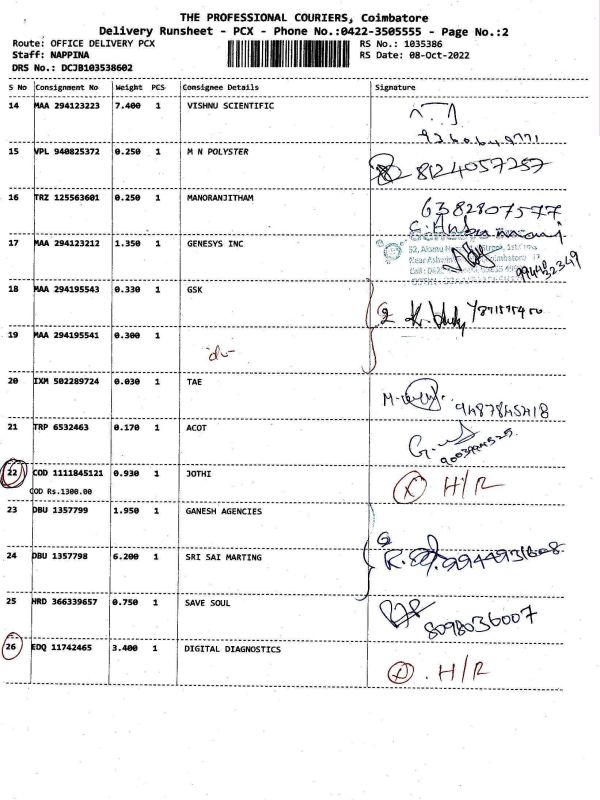 THE PROFESSIONAL COURIERS, Coimbatore
Delivery Runsheet - PCX - Phone No.:0422-3505555 - Page No.:2
Route: OFFICE DELIVERY PCX
Staff: NAPPINA
DRS No.: DCJB103538602
RS No.: 1035386
RS Date: 08-Oct-2022
S No Consignment No Weight PCS Consignee Details Signature
14 MAA 294123223 7.400 1 VISHNU SCIENTIFIC
15 VPL 940825372 0.250 1 M N POLYSTER
8124057257
16 TRZ 125563601 0.250 1 MANORANJITHAM
6382807577
17 MAA 294123212 1.350 1 GENESYS INC
18 MAA 294195543 0.330 1 GSK
2
19 MAA 294195541 0.300 1
20 IXM 502289724 0.030 1 TAE
9487845418
21 TRP 6532463 0.170 1 ACOT
22 COD 1111845121 0.930 1 JOTHI
COD Rs.1300.00
H/R
23 DBU 1357799 1.950 1 GANESH AGENCIES
24 DBU 1357798 6.200 1 SRI SAI MARTING
25 HRD 366339657 0.750 1 SAVE SOUL
8098036007
26 EDQ 11742465 3.400 1 DIGITAL DIAGNOSTICS
H/R